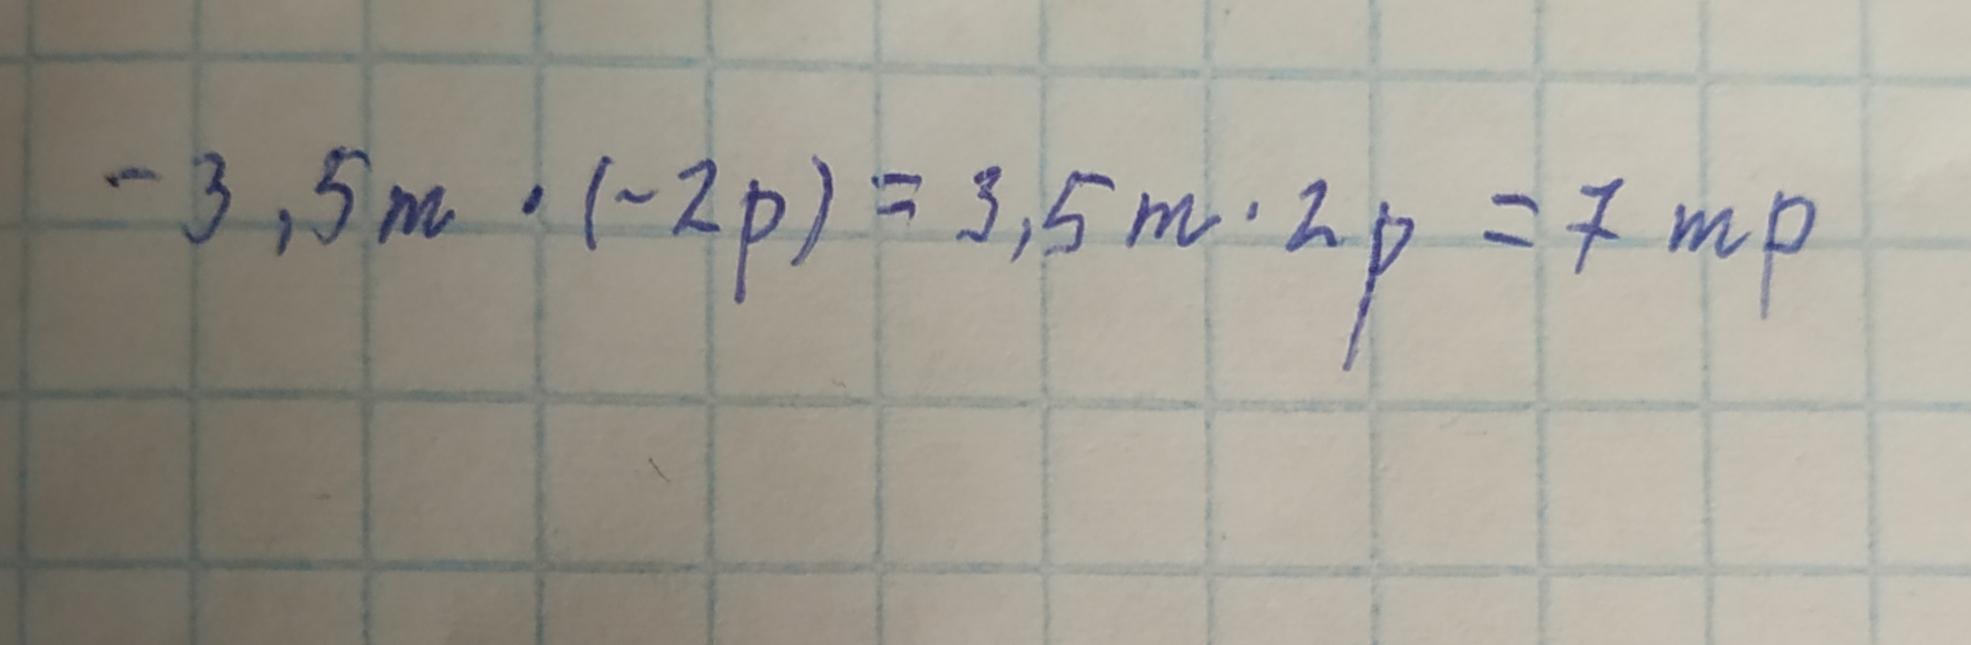 -3,5m · (-2p) = 3,5m · 2p = 7 mp